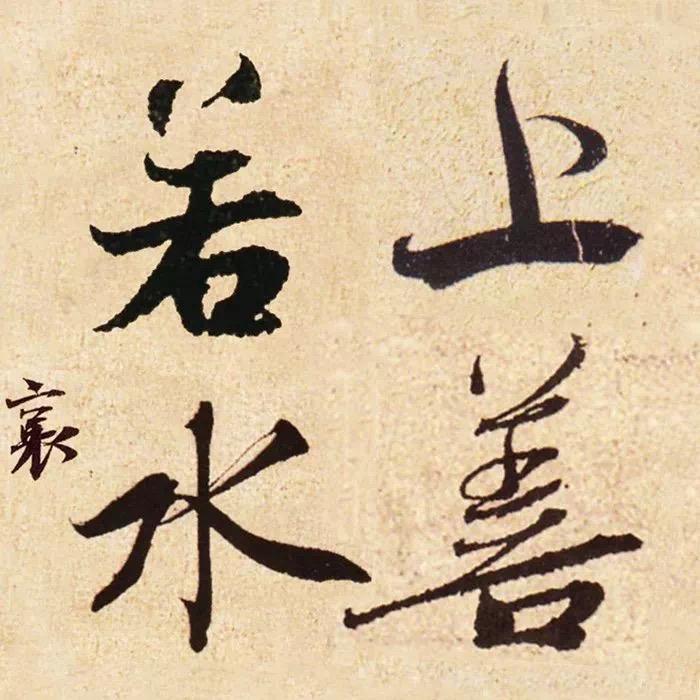 上善
若水
襄